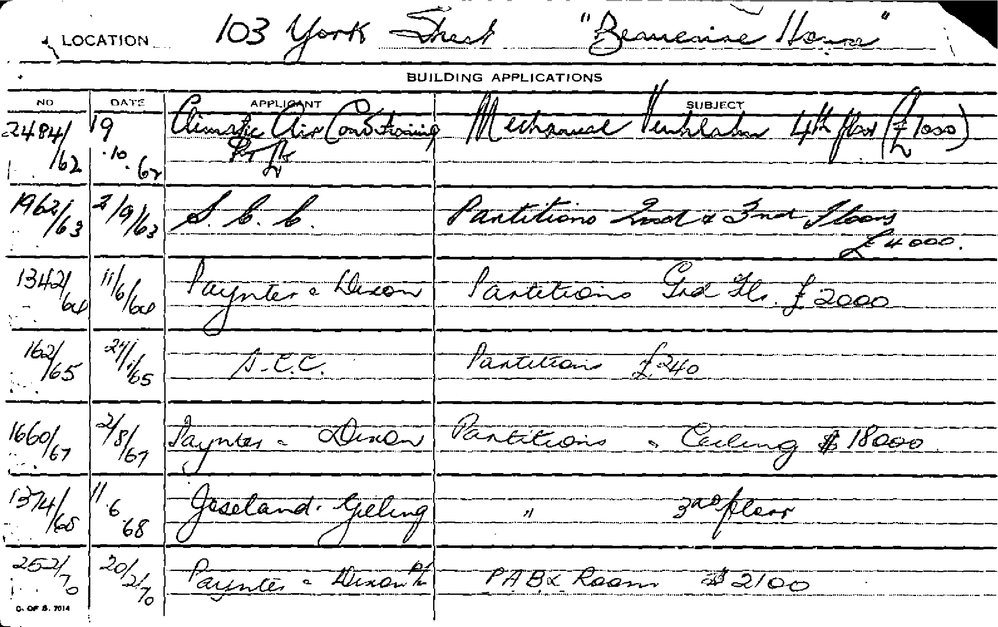 LOCATION 103 York Street "Beneficial House"
BUILDING APPLICATIONS
NO DATE APPLICANT SUBJECT
2484/62 19.10.62 Climatic Air Conditioning Mechanical Ventilation 4th floor (£7000)
Pty Ltd
1962/63 2/9/63 S.C.C. Partitions 2nd & 3rd Floors
£4000.
1342/64 11/6/64 Paynter & Dixon Partitions Grd Flr. £2000
162/65 /1/65 S.C.C. Partitions £240
1660/67 2/8/67 Paynter & Dixon Partitions & Ceiling $18000
1374/68 11.6.68 Joseland & Gilling " 3rd floor
252/70 20/2/70 Paynter & Dixon P/L P.A.B.X Room $2100
C. OF S. 7014